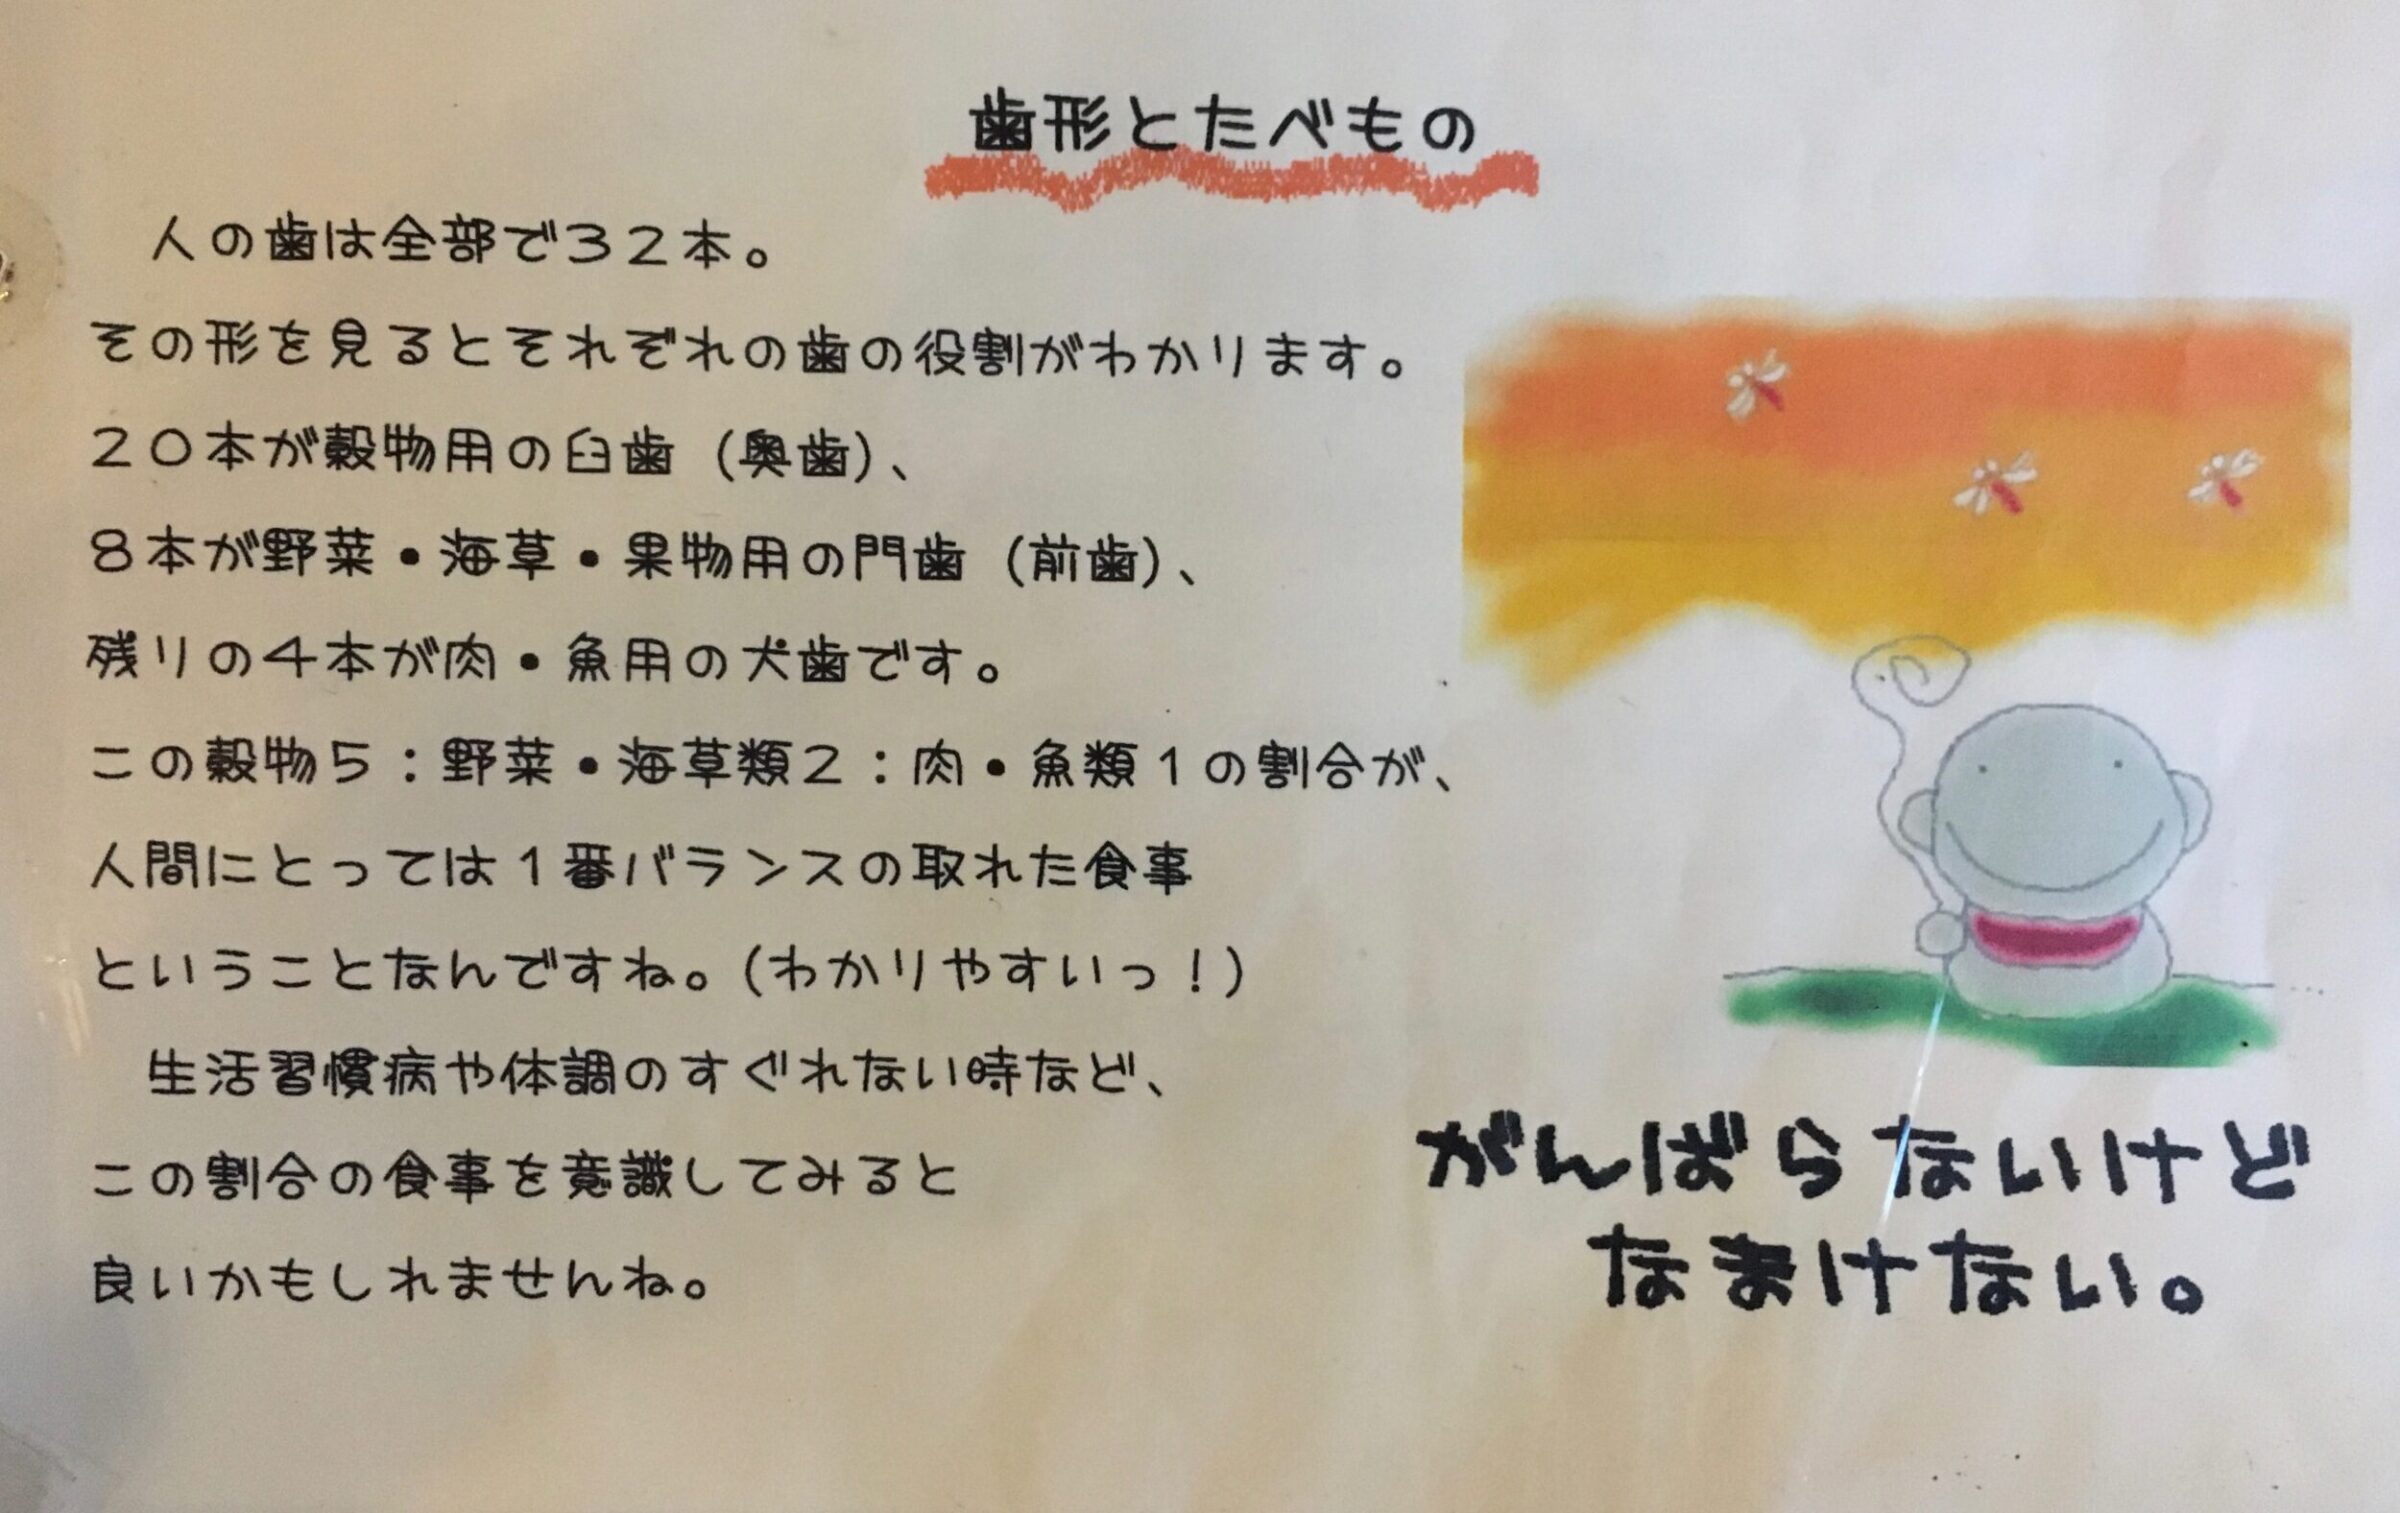 歯形とたべもの
人の歯は全部で３２本。
その形を見るとそれぞれの歯の役割がわかります。
２０本が穀物用の臼歯（奥歯）、
８本が野菜・海草・果物用の門歯（前歯）、
残りの４本が肉・魚用の犬歯です。
この穀物５：野菜・海草類２：肉・魚類１の割合が、
人間にとっては１番バランスの取れた食事
ということなんですね。（わかりやすいっ！）
生活習慣病や体調のすぐれない時など、
この割合の食事を意識してみると
良いかもしれませんね。
がんばらないけど
なまけない。